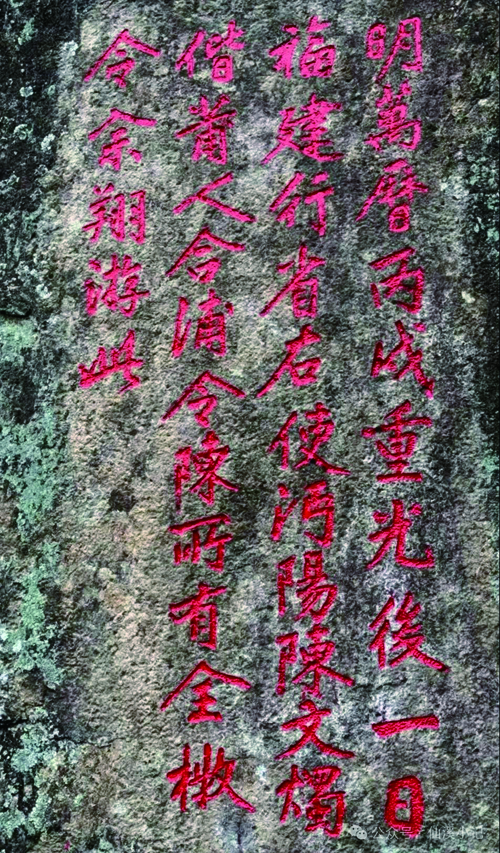 明萬曆丙戌重光後一日
福建行省右使沔陽陳文燭
偕莆人合浦令陳所有全椒
令余翔游此
公众号